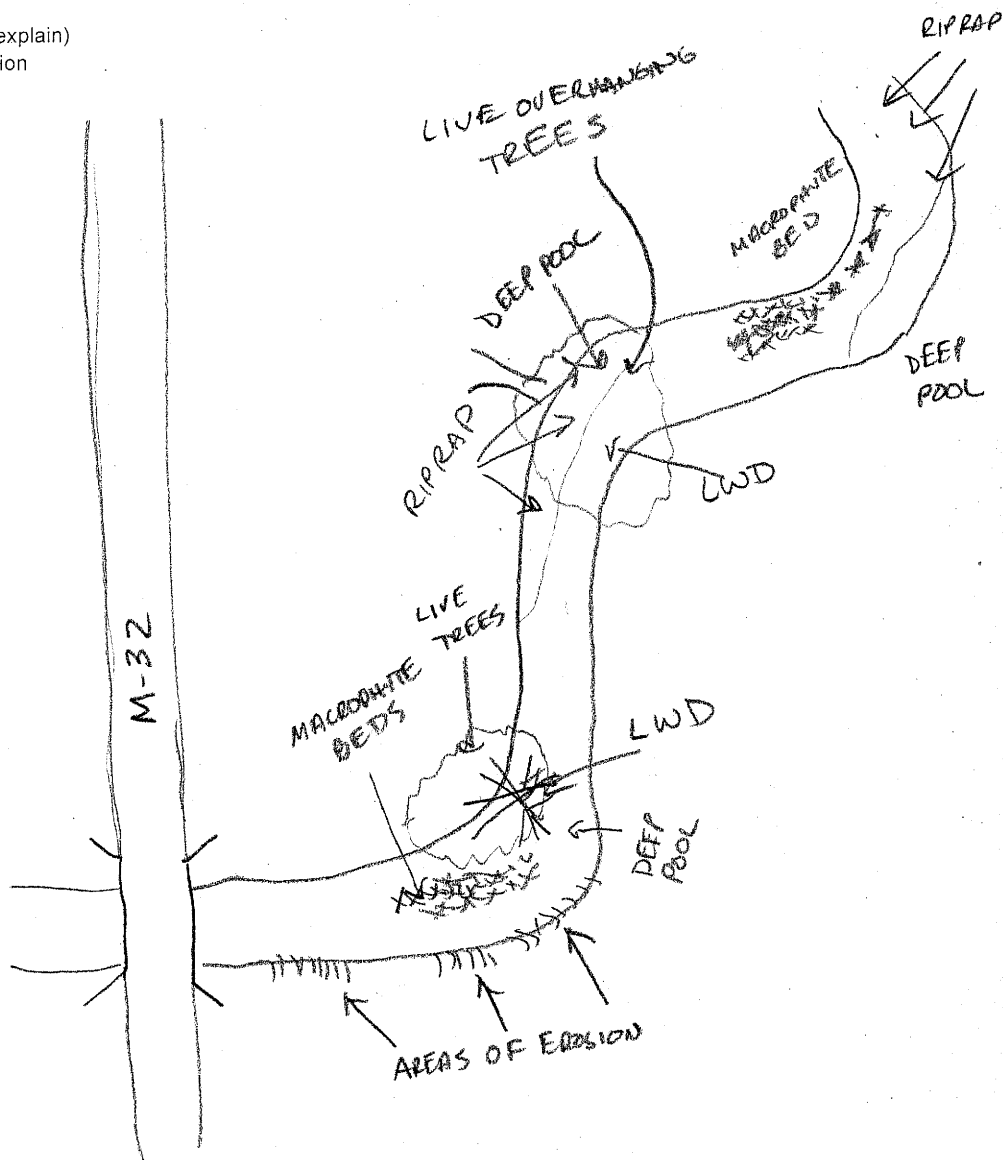 explain)
ion
RIPRAP
LIVE OVERHANGING
TREES
MACROPHITE
BED
DEEP POOL
DEEP
POOL
RIPRAP
LWD
LIVE
TREES
M-32
MACROPHITE
BEDS
LWD
DEEP
POOL
AREAS OF EROSION